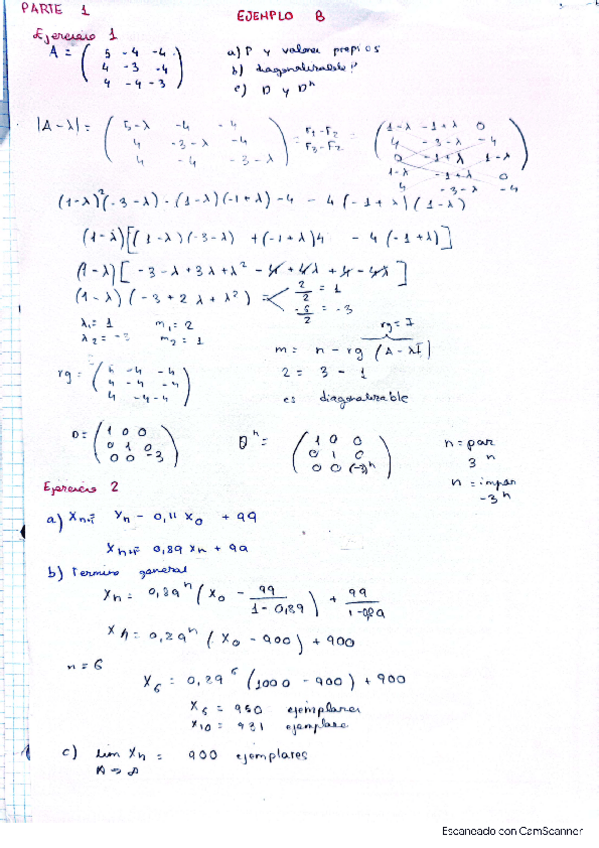 PARTE 1
EJEMPLO B
Ejercicio 1
A = ( 5 -4 -4
4 -3 -4
4 -4 -3 )
a) P y valores propios
b) diagonalizable?
c) D y Dⁿ
|A-λ| = ( 5-λ -4 -4
4 -3-λ -4
4 -4 -3-λ )
= F1-F2
F3-F2 =
( 1-λ -1+λ 0
4 -3-λ -4
0 -1+λ 1-λ )
1-λ -1+λ 0
4 -3-λ -4
(1-λ)²(-3-λ) - (1-λ)(-1+λ)-4 - 4(-1+λ)(1-λ)
(1-λ)[(1-λ)(-3-λ) +(-1+λ)4 - 4(-1+λ)]
(1-λ)[-3-λ+3λ+λ² -4+4λ+4-4λ]
(1-λ)(-3+2λ+λ²) = 2/2 = 1
-6/2 = -3
λ1 = 1 m1 = 2
λ2 = -3 m2 = 1
rg = 1
m = n - rg (A-λI)
2 = 3 - 1
es diagonalizable
rg = ( 4 -4 -4
4 -4 -4
4 -4 -4 )
D = ( 1 0 0
0 1 0
0 0 -3 )
Dⁿ = ( 1 0 0
0 1 0
0 0 (-3)ⁿ )
n = par
3ⁿ
n = impar
-3ⁿ
Ejercicio 2
a) Xn+1 = Xn - 0,11 X0 + 99
Xn+1 = 0,89 Xn + 99
b) Termino general
Xn = 0,89ⁿ (X0 - 99/(1-0,89)) + 99/(1-0,89)
Xn = 0,89ⁿ (X0 - 900) + 900
n = 6
X6 = 0,89⁶ (1000 - 900) + 900
X6 = 950 ejemplares
X10 = 931 ejemplare
c) lim Xn = 900 ejemplares
n→∞
Escaneado con CamScanner